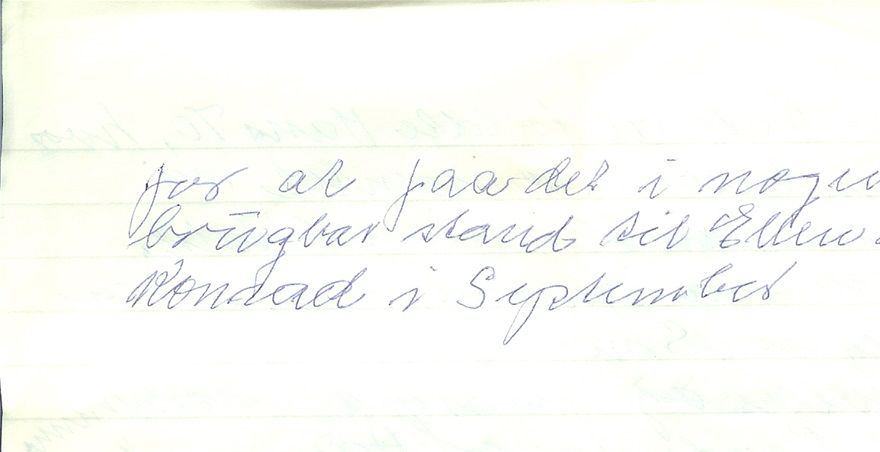 for at faa det i nogen
brugbar stand til Ellen
Konrad i September